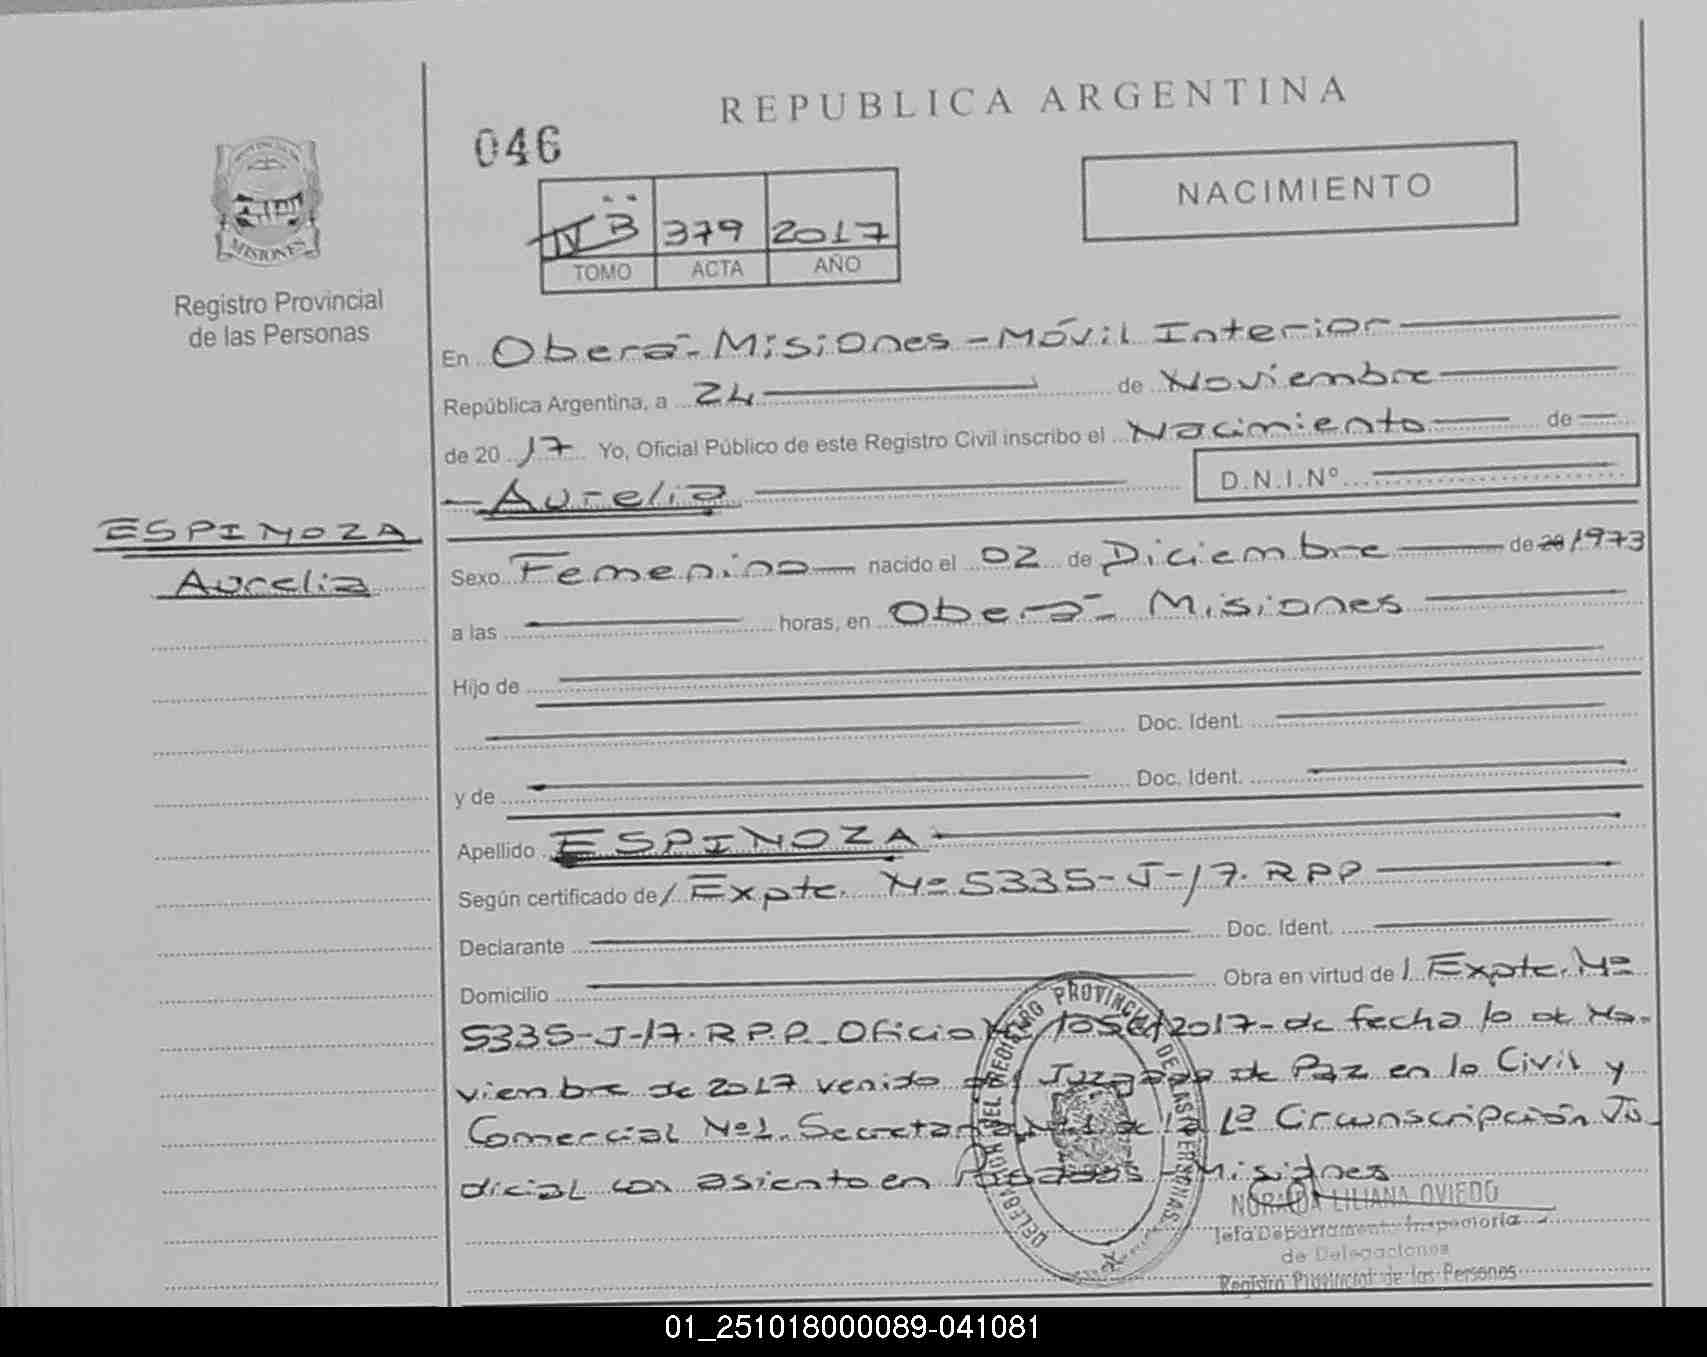 REPUBLICA ARGENTINA
046
NACIMIENTO
IV B 379 2017
TOMO ACTA AÑO
MISIONES
Registro Provincial
de las Personas
En Oberá - Misiones - Móvil Interior
República Argentina, a 24 de Noviembre
de 20 17 Yo, Oficial Público de este Registro Civil inscribo el Nacimiento de
Aurelia D.N.I.Nº
ESPINOZA
Aurelia
Sexo Femenino nacido el 02 de Diciembre de 20 1973
a las horas, en Oberá - Misiones
Hijo de
Doc. Ident.
y de Doc. Ident.
Apellido ESPINOZA
Según certificado de / Expte. Nº 5335-J-17. RPP
Declarante Doc. Ident.
Domicilio Obra en virtud de / Expte. Nº
5335-J-17. R.P.P. Oficio de fecha 10 de No-
viembre de 2017 venido del Juzgado de Paz en lo Civil y
Comercial Nº1. Secretaria Nº1 de la 1ª Circunscripción Ju-
dicial con asiento en Posadas - Misiones
DELEGACION DEL REGISTRO PROVINCIAL DE LAS PERSONAS
LILIANA OVIEDO
Jefa Departamento Inspectoría
de Delegaciones
Registro Provincial de las Personas
01_251018000089-041081